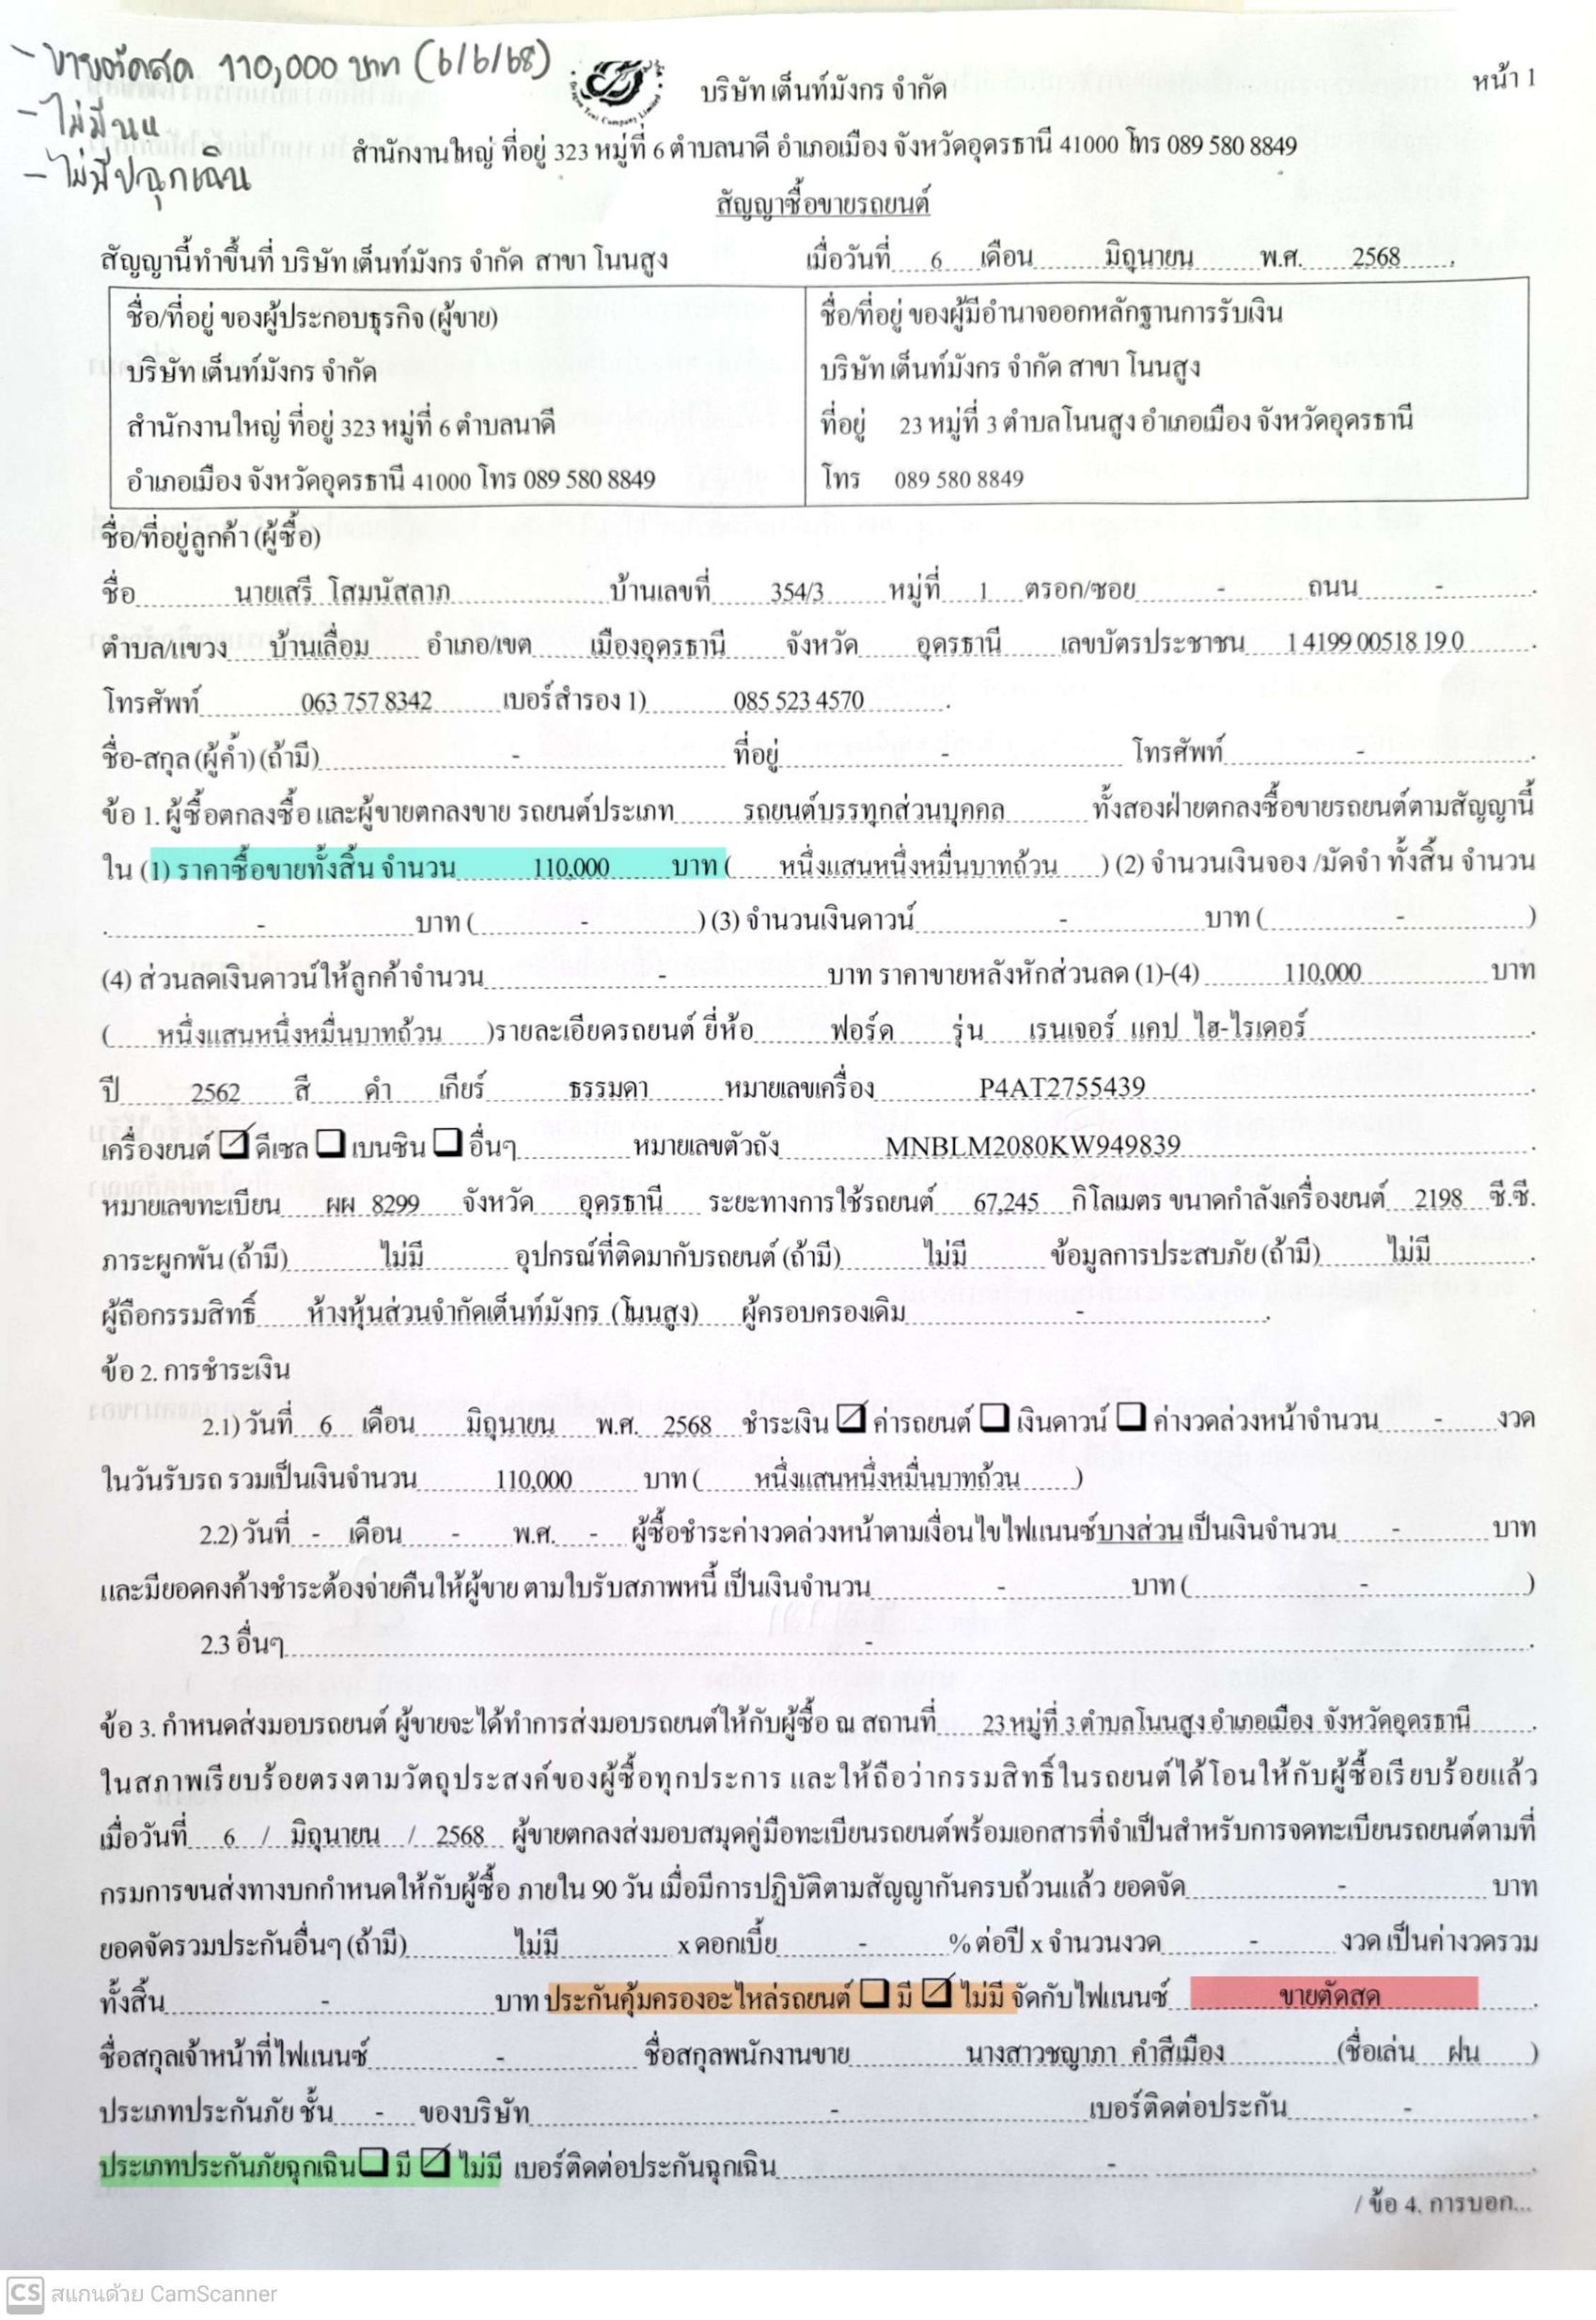 - ขายตัดสด 110,000 บาท (6/6/68)
- ไม่มีนน
- ไม่มีปฉุกเฉิน
หน้า 1
บริษัท เต็นท์มังกร จำกัด
สำนักงานใหญ่ ที่อยู่ 323 หมู่ที่ 6 ตำบลนาดี อำเภอเมือง จังหวัดอุดรธานี 41000 โทร 089 580 8849
สัญญาซื้อขายรถยนต์
สัญญานี้ทำขึ้นที่ บริษัท เต็นท์มังกร จำกัด สาขา โนนสูง เมื่อวันที่ 6 เดือน มิถุนายน พ.ศ. 2568
ชื่อ/ที่อยู่ ของผู้ประกอบธุรกิจ (ผู้ขาย)
บริษัท เต็นท์มังกร จำกัด
สำนักงานใหญ่ ที่อยู่ 323 หมู่ที่ 6 ตำบลนาดี
อำเภอเมือง จังหวัดอุดรธานี 41000 โทร 089 580 8849
ชื่อ/ที่อยู่ ของผู้มีอำนาจออกหลักฐานการรับเงิน
บริษัท เต็นท์มังกร จำกัด สาขา โนนสูง
ที่อยู่ 23 หมู่ที่ 3 ตำบลโนนสูง อำเภอเมือง จังหวัดอุดรธานี
โทร 089 580 8849
ชื่อ/ที่อยู่ลูกค้า (ผู้ซื้อ)
ชื่อ นายเสรี โสมนัสลาภ บ้านเลขที่ 354/3 หมู่ที่ 1 ตรอก/ซอย - ถนน -
ตำบล/แขวง บ้านเลื่อม อำเภอ/เขต เมืองอุดรธานี จังหวัด อุดรธานี เลขบัตรประชาชน 1 4199 00518 19 0
โทรศัพท์ 063 757 8342 เบอร์สำรอง 1) 085 523 4570
ชื่อ-สกุล (ผู้ค้ำ) (ถ้ามี) - ที่อยู่ - โทรศัพท์ -
ข้อ 1. ผู้ซื้อตกลงซื้อ และผู้ขายตกลงขาย รถยนต์ประเภท รถยนต์บรรทุกส่วนบุคคล ทั้งสองฝ่ายตกลงซื้อขายรถยนต์ตามสัญญานี้
ใน (1) ราคาซื้อขายทั้งสิ้น จำนวน 110,000 บาท ( หนึ่งแสนหนึ่งหมื่นบาทถ้วน ) (2) จำนวนเงินจอง /มัดจำ ทั้งสิ้น จำนวน
- บาท ( - ) (3) จำนวนเงินดาวน์ - บาท ( - )
(4) ส่วนลดเงินดาวน์ให้ลูกค้าจำนวน - บาท ราคาขายหลังหักส่วนลด (1)-(4) 110,000 บาท
( หนึ่งแสนหนึ่งหมื่นบาทถ้วน )รายละเอียดรถยนต์ ยี่ห้อ ฟอร์ด รุ่น เรนเจอร์ แคป ไฮ-ไรเดอร์
ปี 2562 สี ดำ เกียร์ ธรรมดา หมายเลขเครื่อง P4AT2755439
เครื่องยนต์ ☑ ดีเซล ☐ เบนซิน ☐ อื่นๆ หมายเลขตัวถัง MNBLM2080KW949839
หมายเลขทะเบียน ผผ 8299 จังหวัด อุดรธานี ระยะทางการใช้รถยนต์ 67,245 กิโลเมตร ขนาดกำลังเครื่องยนต์ 2198 ซี.ซี.
ภาระผูกพัน (ถ้ามี) ไม่มี อุปกรณ์ที่ติดมากับรถยนต์ (ถ้ามี) ไม่มี ข้อมูลการประสบภัย (ถ้ามี) ไม่มี
ผู้ถือกรรมสิทธิ์ ห้างหุ้นส่วนจำกัดเต็นท์มังกร (โนนสูง) ผู้ครอบครองเดิม -
ข้อ 2. การชำระเงิน
2.1) วันที่ 6 เดือน มิถุนายน พ.ศ. 2568 ชำระเงิน ☑ ค่ารถยนต์ ☐ เงินดาวน์ ☐ ค่างวดล่วงหน้าจำนวน - งวด
ในวันรับรถ รวมเป็นเงินจำนวน 110,000 บาท ( หนึ่งแสนหนึ่งหมื่นบาทถ้วน )
2.2) วันที่ - เดือน - พ.ศ. - ผู้ซื้อชำระค่างวดล่วงหน้าตามเงื่อนไขไฟแนนซ์บางส่วน เป็นเงินจำนวน - บาท
และมียอดคงค้างชำระต้องจ่ายคืนให้ผู้ขาย ตามใบรับสภาพหนี้ เป็นเงินจำนวน - บาท ( - )
2.3 อื่นๆ -
ข้อ 3. กำหนดส่งมอบรถยนต์ ผู้ขายจะได้ทำการส่งมอบรถยนต์ให้กับผู้ซื้อ ณ สถานที่ 23 หมู่ที่ 3 ตำบลโนนสูง อำเภอเมือง จังหวัดอุดรธานี
ในสภาพเรียบร้อยตรงตามวัตถุประสงค์ของผู้ซื้อทุกประการ และให้ถือว่ากรรมสิทธิ์ในรถยนต์ได้โอนให้กับผู้ซื้อเรียบร้อยแล้ว
เมื่อวันที่ 6 / มิถุนายน / 2568 ผู้ขายตกลงส่งมอบสมุดคู่มือทะเบียนรถยนต์พร้อมเอกสารที่จำเป็นสำหรับการจดทะเบียนรถยนต์ตามที่
กรมการขนส่งทางบกกำหนดให้กับผู้ซื้อ ภายใน 90 วัน เมื่อมีการปฏิบัติตามสัญญากันครบถ้วนแล้ว ยอดจัด - บาท
ยอดจัดรวมประกันอื่นๆ (ถ้ามี) ไม่มี x ดอกเบี้ย - % ต่อปี x จำนวนงวด - งวด เป็นค่างวดรวม
ทั้งสิ้น - บาท ประกันคุ้มครองอะไหล่รถยนต์ ☐ มี ☑ ไม่มี จัดกับไฟแนนซ์ ขายตัดสด
ชื่อสกุลเจ้าหน้าที่ไฟแนนซ์ - ชื่อสกุลพนักงานขาย นางสาวชญาภา คำสีเมือง (ชื่อเล่น ฝน )
ประเภทประกันภัย ชั้น - ของบริษัท - เบอร์ติดต่อประกัน -
ประเภทประกันภัยฉุกเฉิน ☐ มี ☑ ไม่มี เบอร์ติดต่อประกันฉุกเฉิน -
/ ข้อ 4. การบอก...
CS สแกนด้วย CamScanner